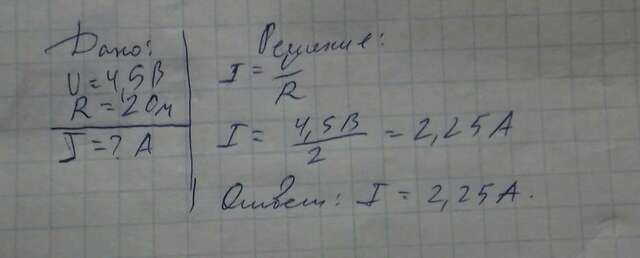 Дано:
U = 4,5 В
R = 2 Ом
I = ? А
Решение:
I = — / R
I = 4,5 В / 2 = 2,25 А
Ответ: I = 2,25 А.